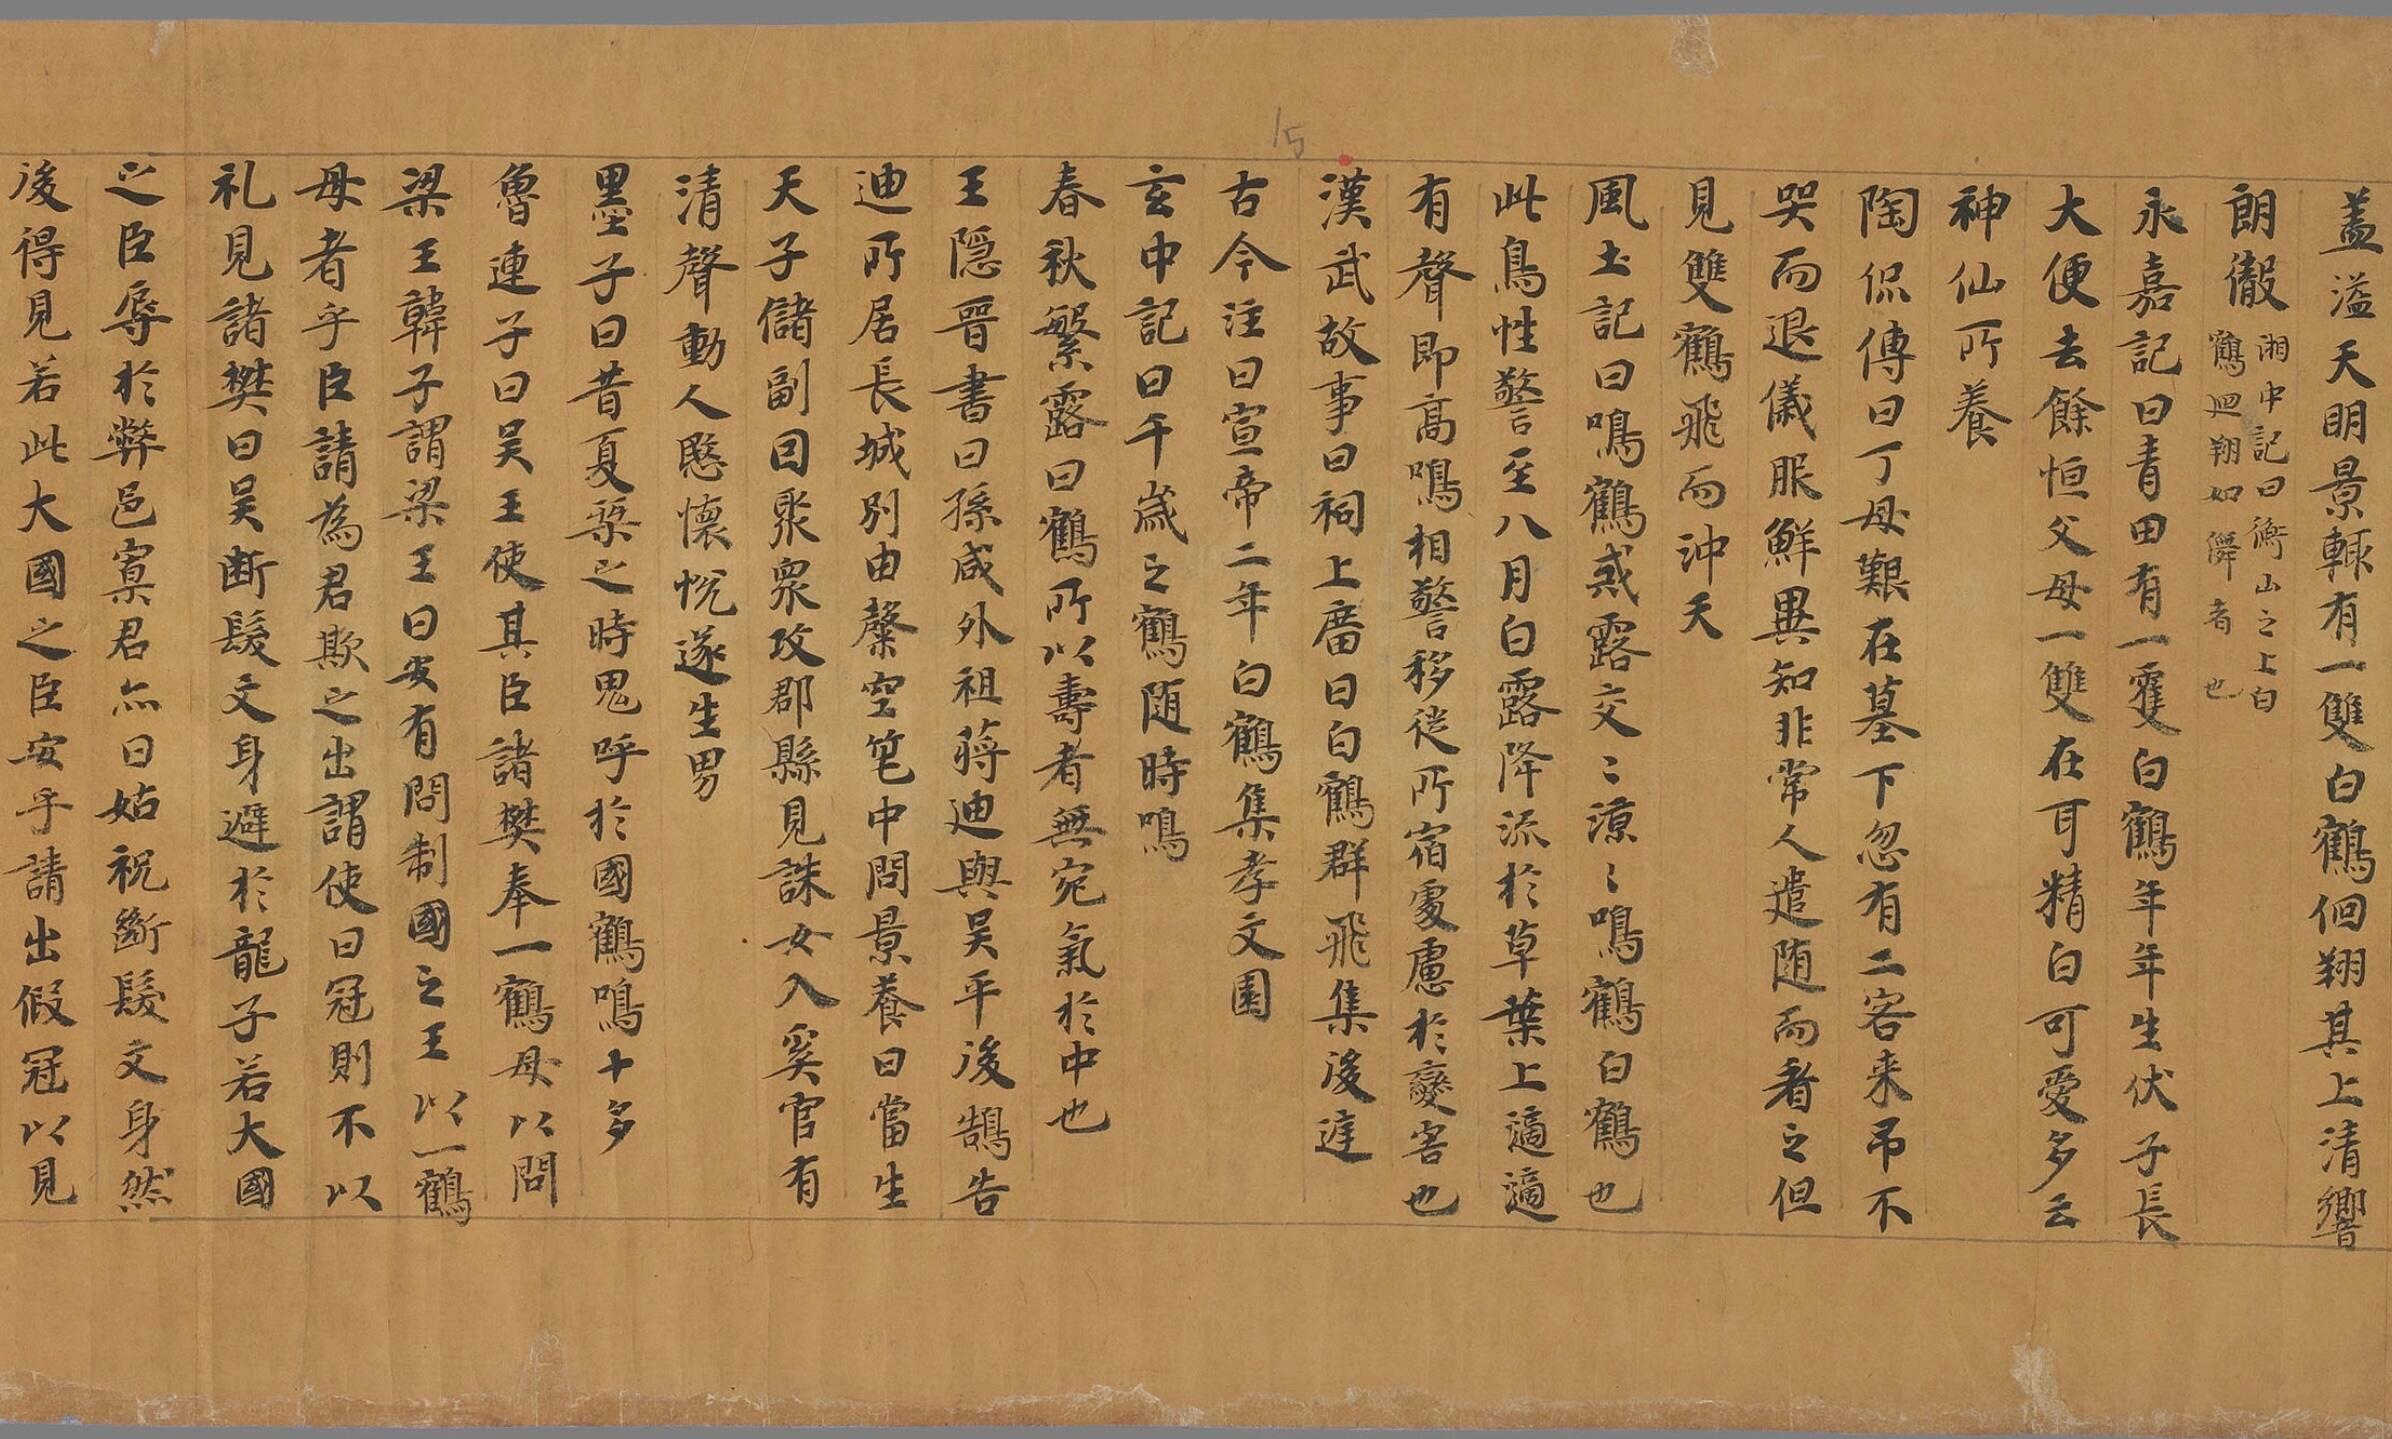 蓋溢天明景輙有一雙白鶴佪翔其上清響
朗徹
湘中記曰衡山之上白
鶴廻翔如儛者也
永嘉記曰青田有一雙白鶴年年生伏子長
大便去餘恒父母一雙在可精白可愛多云
神仙所養
陶侃傳曰丁母艱在墓下忽有二客来吊不
哭而退儀服鮮異知非常人遣随而看之但
見雙鶴飛而沖天
風土記曰鳴鶴戒露交〻涼〻鳴鶴白鶴也
此鳥性警至八月白露降流於草葉上適適
有聲即高鳴相警移徙所宿處慮於變害也
漢武故事曰祠上廣日白鶴群飛集後遑
古今注曰宣帝二年白鶴集孝文園
玄中記曰千歲之鶴随時鳴
春秋繁露曰鶴所以壽者無宛氣於中也
王隱晉書曰孫咸外祖蔣迪與吴平後鵠告
迪所居長城別由穈空笔中問景養曰當生
天子儲副囙聚衆攻郡縣見誅女入奚官有
清聲動人愍懷悅遂生男
墨子曰昔夏桀之時鬼呼於國鶴鳴十多
魯連子曰吴王使其臣諸樊奉一鶴母以問
梁王韓子謂梁王曰安有問制國之王以一鶴
母者乎臣請為君欺之出謂使曰冠則不以
礼見諸樊曰吴断髮文身避於龍子若大國
之臣辱於弊邑寡君亦曰姑祝斷髮文身然
後得見若此大國之臣安乎請出假冠以見
15